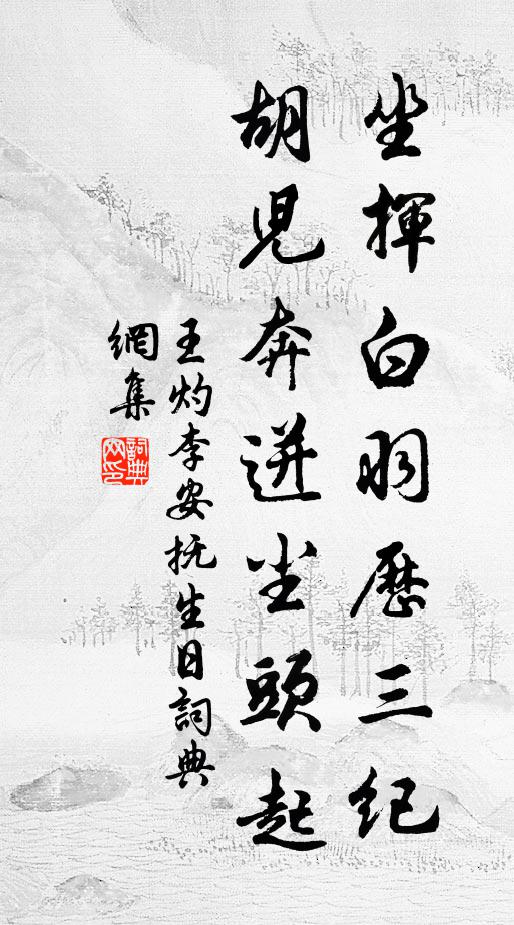 坐揮白羽歷三紀
胡兒奔迸尘頭起
王灼李安抚生日詞典
網集
詞典
网印